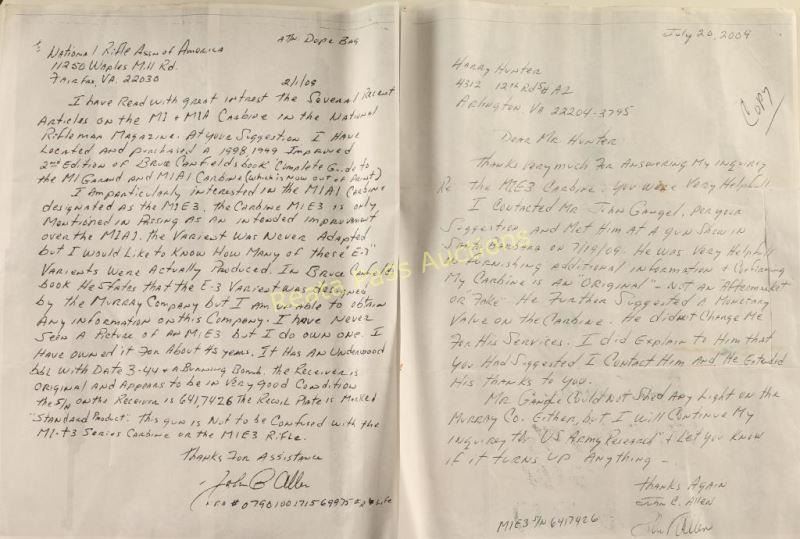 To National Rifle Assn of America
Attn Dope Bag
11250 Waples Mill Rd.
Fairfax, VA. 22030
2/1/09
I have Read with great intrest the Several Recent
Articles on the M1 + M1A Carbine in the National
Rifleman Magazine. At your Suggestion I Have
Located and purchased a 1998, 1999 Improved
2nd Edition of Bruce Canfields book "Complete Guide to
the M1 Garand and M1A1 Carbine (which is now out of Print)
I Am particularly interested in the M1A1 Carbine
designated as the M1E3. the Carbine M1E3 is only
Mentioned in Passing As An intended Improvement
over the M1A1. the Varient was Never Adapted
but I would Like to Know How Many of these "E-3"
Varients Were Actually Produced. In Bruce Canfields
book He States that the E-3 Varient was designed
by the Murray Company but I am unable to obtain
Any Information on this Company. I have Never
Seen A Picture of An M1E3 but I do own one. I
Have owned it For About 45 years. It Has An Underwood
bbl with Date 3-44 + A Burning Bomb. the Receiver is
original and Appears to be in Very good Condition
the S/N on the Receiver is 6417426 the Recoil Plate is Marked
"Standard Product". This gun is Not to be Confused with the
M1-T3 Series Carbine or the M1E3 Rifle.
Thanks For Assistance
John C Allen
July 20, 2009
Harry Hunter
4312 12th Rd So A2
Arlington VA 22204-3745
Copy
Dear Mr. Hunter:
Thanks very much For Answering My Inquiry
Re the M1E3 Carbine. You were Very Helpfull.
I Contacted Mr John Gangel, per your
Suggestion, And Met Him At A gun Show in
Santa Barbara on 7/19/09. He was Very Helpfull
in Furnishing Additional Information + Confirming
My Carbine is An "Original" - Not An Aftermarket
or "Fake". He Further Suggested A Monetary
Value on the Carbine. He didn't Charge Me
For His Services. I did Explain to Him that
You Had Suggested I Contact Him And He Extended
His Thanks to You.
Mr. Gangle Could Not Shed Any Light on the
Murray Co. Either, but I will Continue My
Inquirey thr "US Army Research" + Let you Know
if it turns up Anything -
Thanks Again
John C. Allen
John C Allen
M1E3 S/N 6417426
Reata Pass Auctions